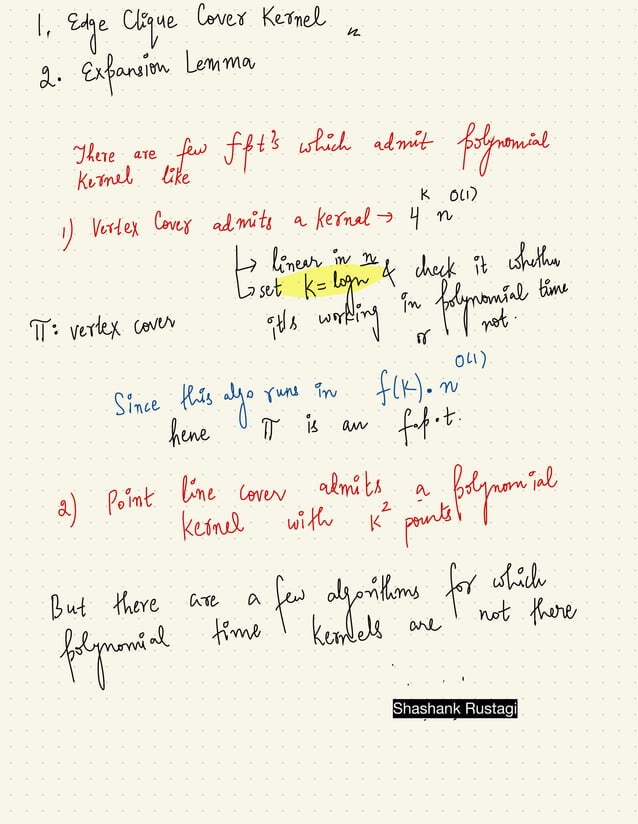 1. Edge Clique Cover Kernel
2. Expansion Lemma
There are few fpt's which admit polynomial
Kernel like
1) Vertex Cover admits a kernal → 4^K n^O(1)
↳ linear in n
↳ set K = logn & check it whether
π: vertex cover it's working in polynomial time
or not.
Since this also runs in f(K). n^O(1)
hene π is an f.p.t.
2) Point line cover admits a polynomial
kernel with K^2 points
But there are a few algorithms for which
polynomial time kernels are not there
Shashank Rustagi